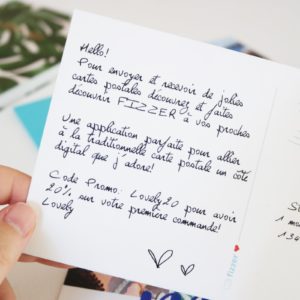 Hello!
Pour envoyer et recevoir de jolies
cartes postales découvrez et faites
découvrir FIZZER à vos proches
Une application parfaite pour allier
à la traditionnelle carte postale un côté
digital que j'adore!
Code Promo: Lovely20 pour avoir
20% sur votre première commande!
Lovely
fizzer
1 
134